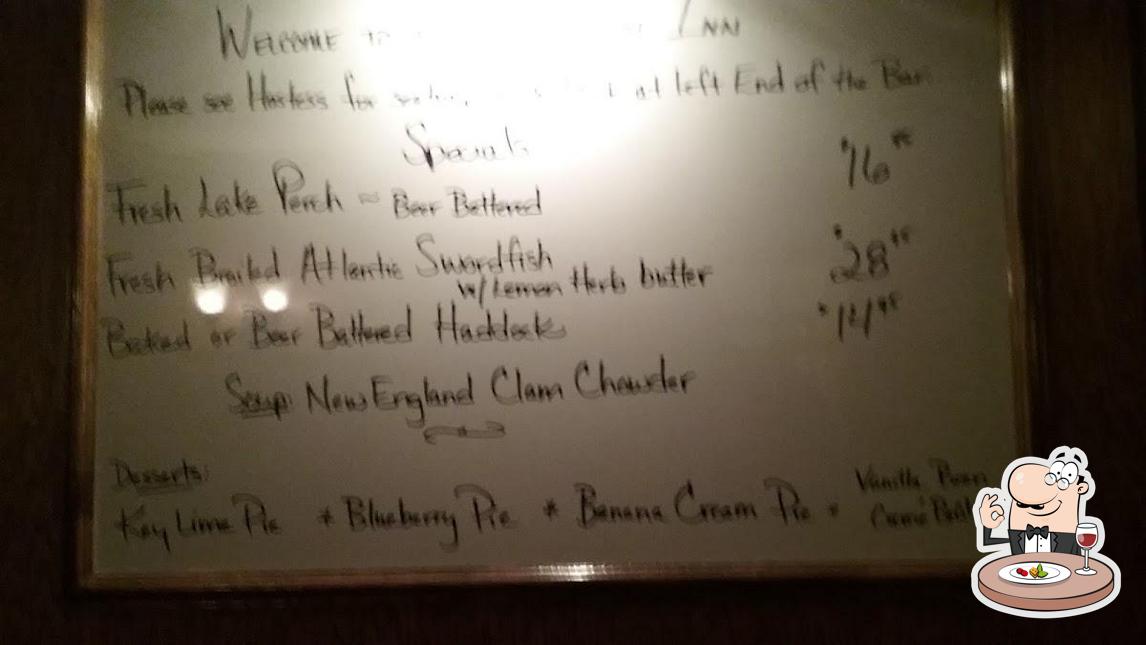 Welcome to Inn
Please see Hostess for at left End of the Bar
Specials
Fresh Lake Perch ~ Beer Battered $16.95
Fresh Broiled Atlantic Swordfish $28.95
w/ Lemon Herb butter
Baked or Beer Battered Haddock $14.95
Soup: New England Clam Chowder
Desserts:
Key Lime Pie * Blueberry Pie * Banana Cream Pie * Vanilla Bean